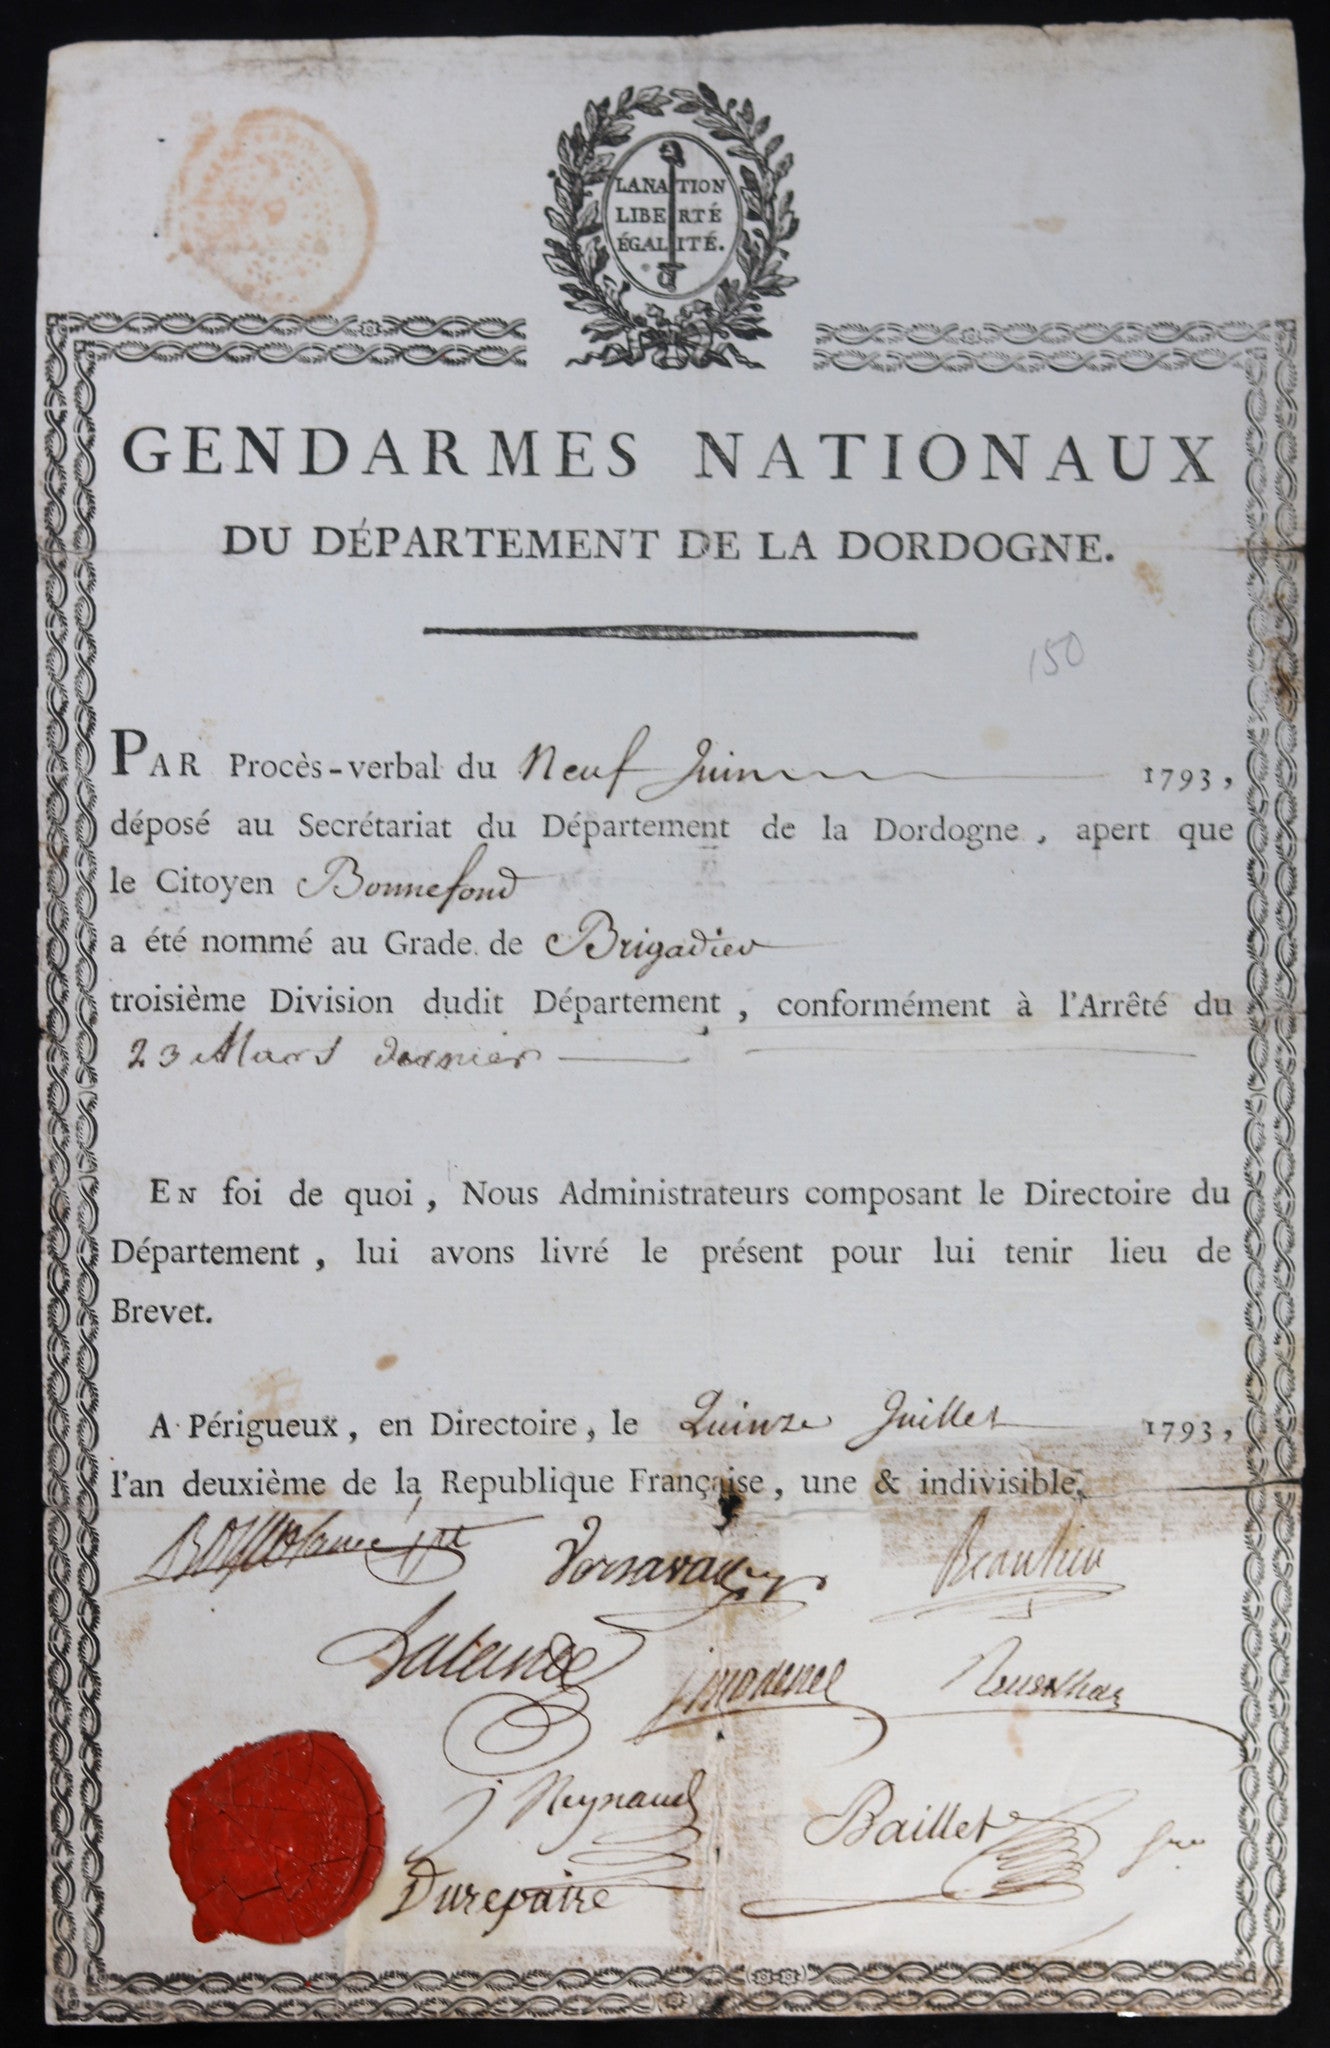 LA NATION
LIBERTÉ
ÉGALITÉ.
GENDARMES NATIONAUX
DU DÉPARTEMENT DE LA DORDOGNE.
150
PAR Procès-verbal du Neuf Juin 1793,
déposé au Secrétariat du Département de la Dordogne, apert que
le Citoyen Bonnefond
a été nommé au Grade de Brigadier
troisième Division dudit Département, conformément à l'Arrêté du
23 Mars dernier
EN foi de quoi, Nous Administrateurs composant le Directoire du
Département, lui avons livré le présent pour lui tenir lieu de
Brevet.
A Périgueux, en Directoire, le Quinze Juillet 1793,
l'an deuxième de la Republique Française, une & indivisible.
Beaulieu
J Reynaud
Baillet
Durepaire